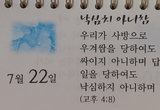 낙심치 아니함
우리가 사방으로
우겨쌈을 당하여도
싸이지 아니하며 답
일을 당하여도
낙심하지 아니하며
(고후 4:8)
7월 22일